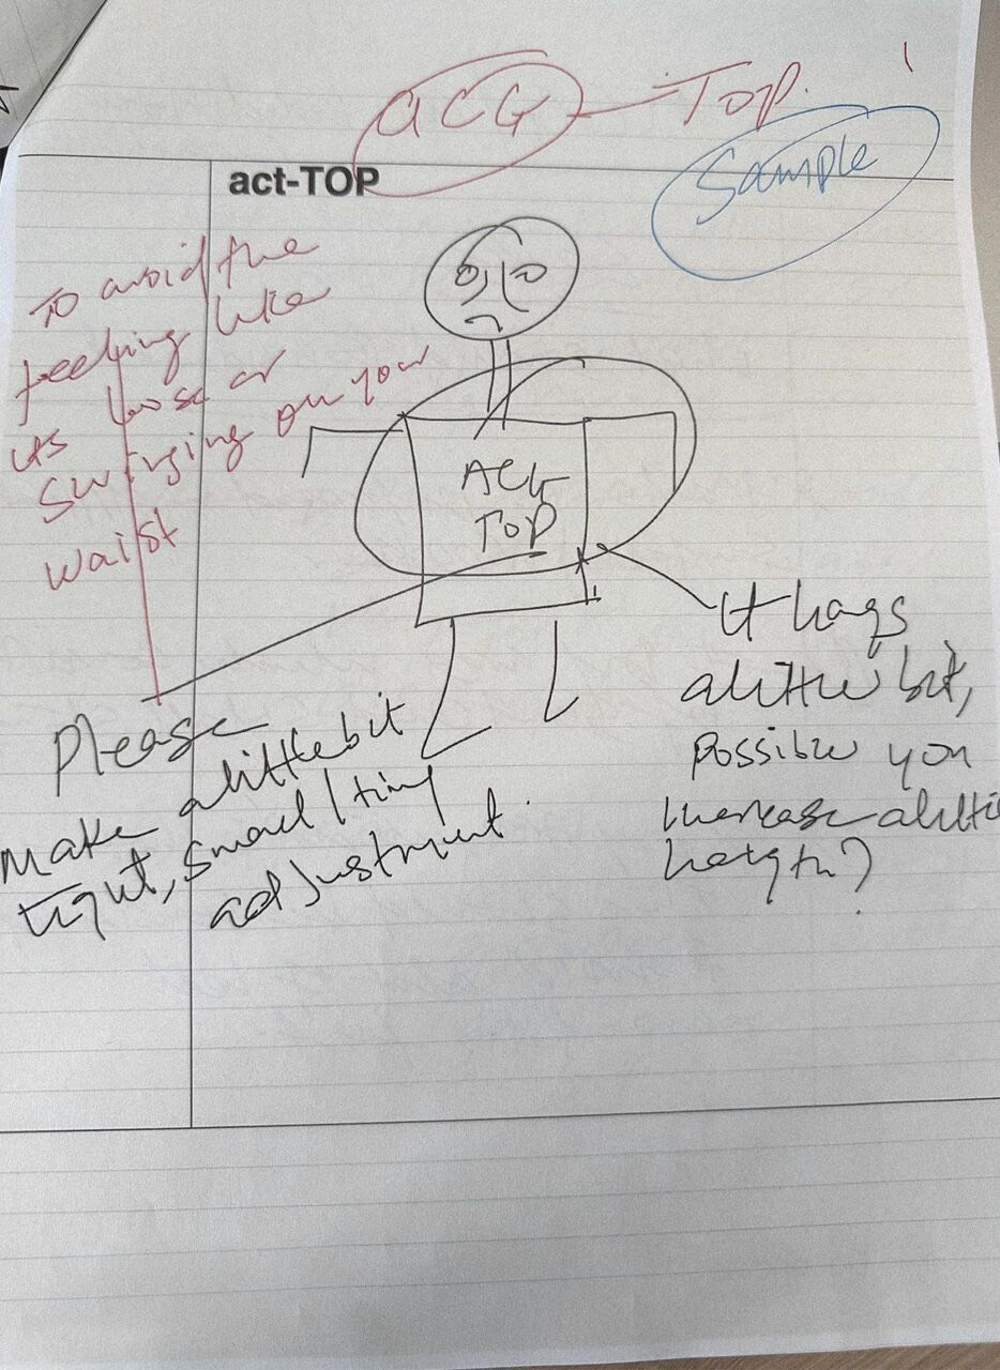 ACG - Top.
Sample
act-TOP
To avoid the
feeling like
its loose or
swinging on your
waist
ACG
TOP
It hags
alittle bit,
possible you
increase alittle
heigth?
Please
make alittle bit
tight, small / tiny
adjustment.